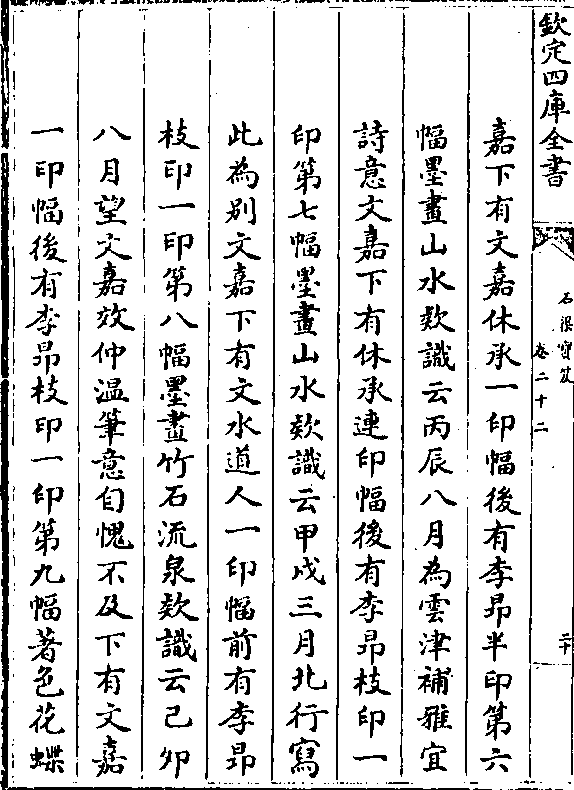 欽定四庫全書
石渠寶笈
卷二十二
二十
嘉下有文嘉休承一印幅後有李昂半印第六
幅墨畫山水欵識云丙辰八月為雲津補雅宜
詩意文嘉下有休承連印幅後有李昂枝印一
印第七幅墨畫山水欵識云甲戌三月北行寫
此為别文嘉下有文水道人一印幅前有李昂
枝印一印第八幅墨畫竹石流泉欵識云己卯
八月望文嘉效仲温筆意自愧不及下有文嘉
一印幅後有李昂枝印一印第九幅著色花蝶